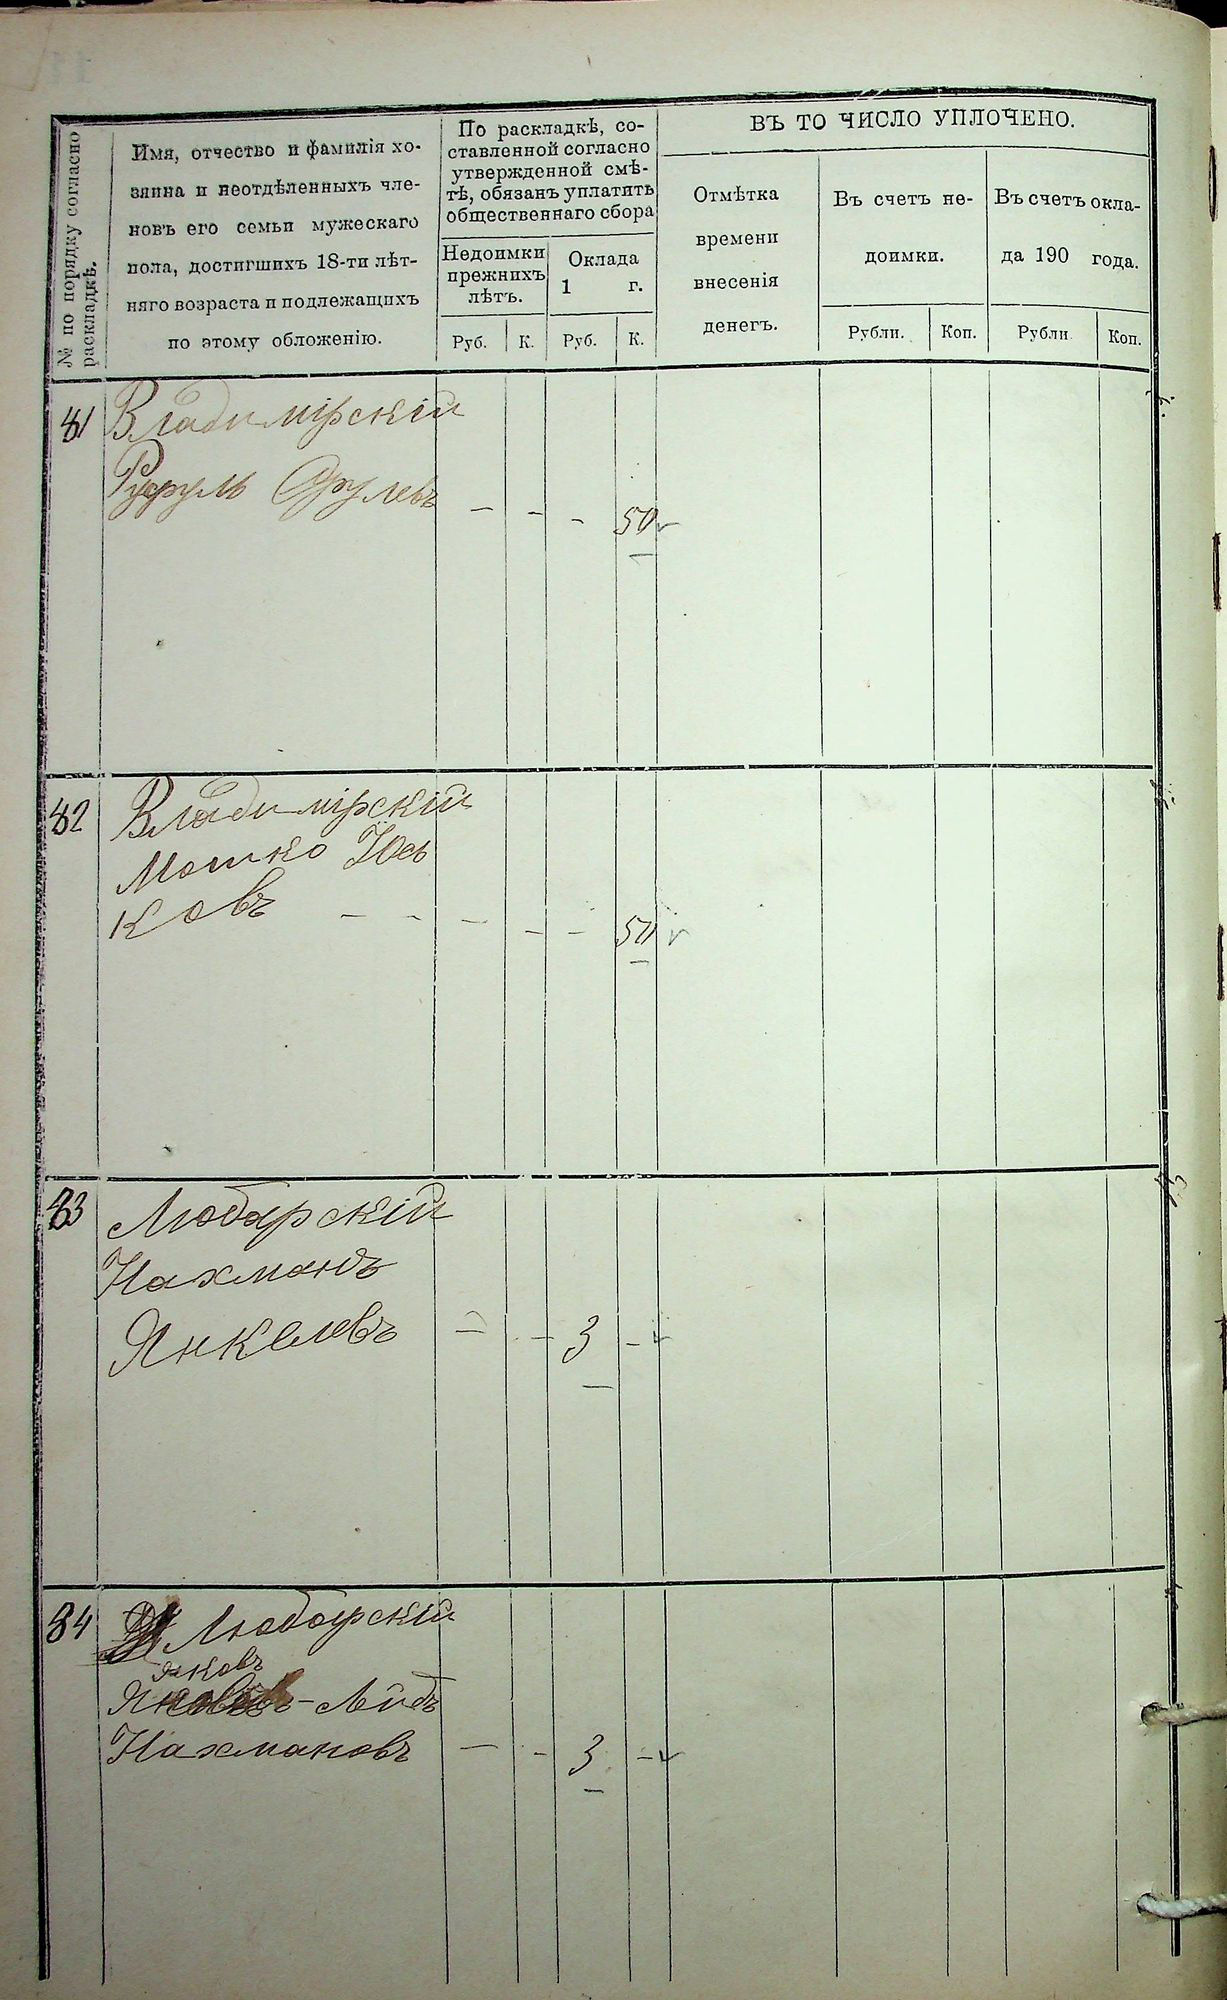 № по порядку согласно
раскладкѣ.
Имя, отчество и фамилія хо-
зяина и неотдѣленныхъ чле-
новъ его семьи мужескаго
пола, достигшихъ 18-ти лѣт-
няго возраста и подлежащихъ
по этому обложенію.
По раскладкѣ, со-
ставленной согласно
утвержденной смѣ-
тѣ, обязанъ уплатить
общественнаго сбора
Недоимки
прежнихъ
лѣтъ.
Оклада
1 г.
Руб. К. Руб. К.
ВЪ ТО ЧИСЛО УПЛОЧЕНО.
Отмѣтка
времени
внесенія
денегъ.
Въ счетъ не-
доимки.
Въ счетъ окла-
да 190 года.
Рубли. Коп. Рубли Коп.
81 Владимірскій
Срулевъ - - - 50
82 Владимірскій
Мошко Юсь
ковъ - - - - - 50
83 Любарскій
Нахманъ
Янкелевъ - - 3 -
84 Любарскій
Яковъ
Лейбъ
Нахмановъ - - 3 -